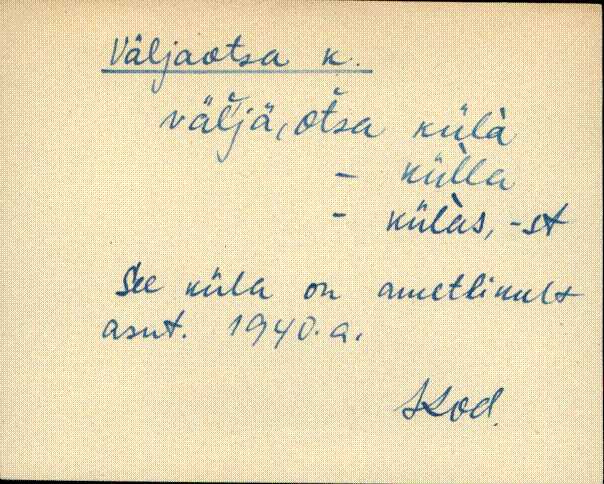 Väljaotsa k.
väľjä, otsa külà
- külla
- külàs, -st
See küla on ametlikult
asut. 1940. a.
Kod.